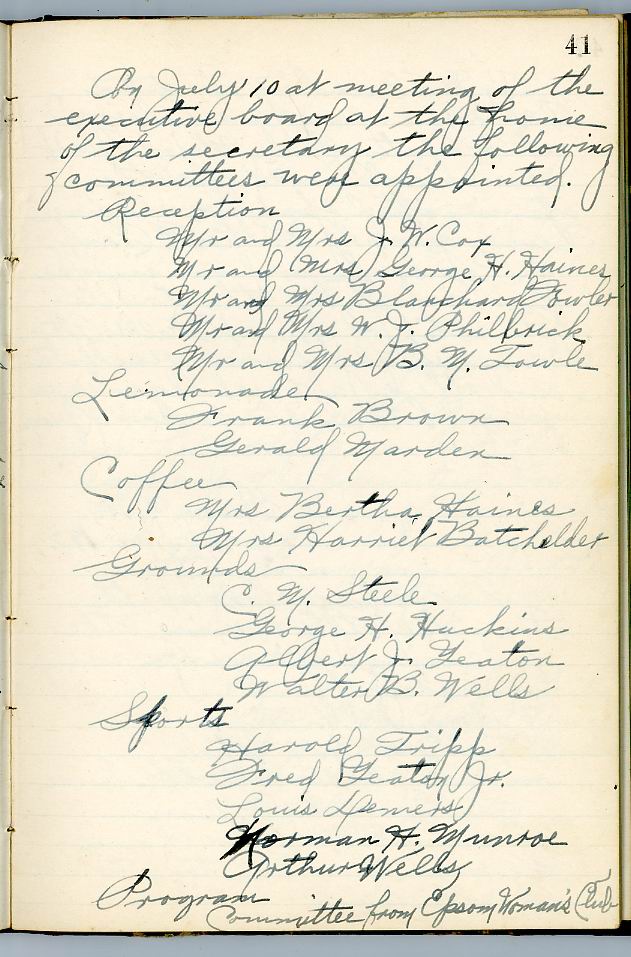 41
On July 10 at meeting of the
executive board at the home
of the secretary the following
committees were appointed.
Reception
Mr and Mrs J. W. Cox
Mr and Mrs George H. Haines
Mr and Mrs Blanchard Fowler
Mr and Mrs W. J. Philbrick
Mr and Mrs B. M. Towle
Lemonade
Frank Brown
Gerald Marden
Coffee
Mrs Bertha Haines
Mrs Harriet Batchelder
Grounds
C. M. Steele
George H. Huckins
Albert J. Yeaton
Walter B. Wells
Sports
Harold Tripp
Fred Yeaton Jr.
Louis Demers
Norman H. Munroe
Arthur Wells
Program
Committee from Epsom Woman's Club